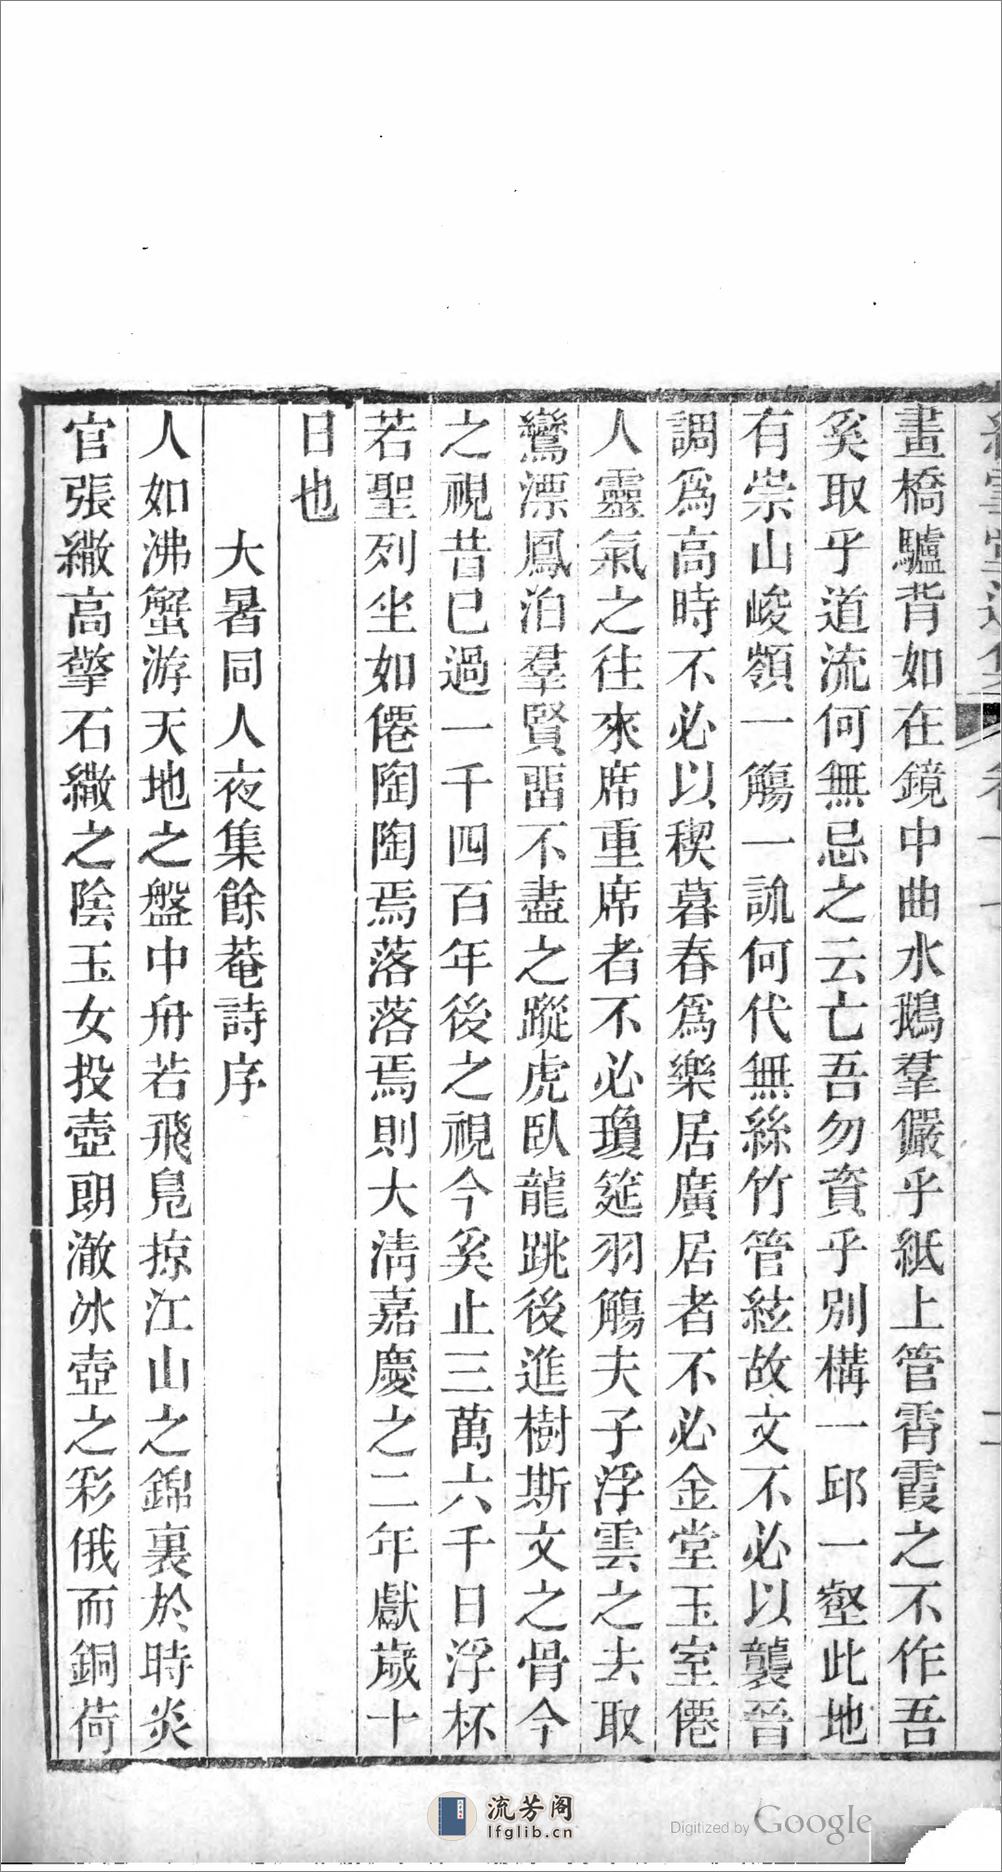 畫橋驢背如在鏡中曲水鵝羣儼乎紙上管霄霞之不作吾
奚取乎道流何無忌之云亡吾勿資乎別構一邱一壑此地
有崇山峻嶺一觴一詠何代無絲竹管絃故文不必以襲晉
調爲高時不必以稧暮春爲樂居廣居者不必金堂玉室僊
人靈氣之往來席重席者不必瓊筵羽觴夫子浮雲之去取
鸞漂鳳泊羣賢畱不盡之蹤虎臥龍跳後進樹斯文之骨今
之視昔已過一千四百年後之視今奚止三萬六千日浮杯
若聖列坐如僊陶陶焉落落焉則大淸嘉慶之二年獻歲十
日也
大暑同人夜集餘菴詩序
人如沸蟹游天地之盤中舟若飛鳧掠江山之錦裏於時炎
官張繖高擎石繖之陰玉女投壺壺朗澈冰壺之彩俄而銅荷
流芳阁
lfglib.cn
Digitized by Google